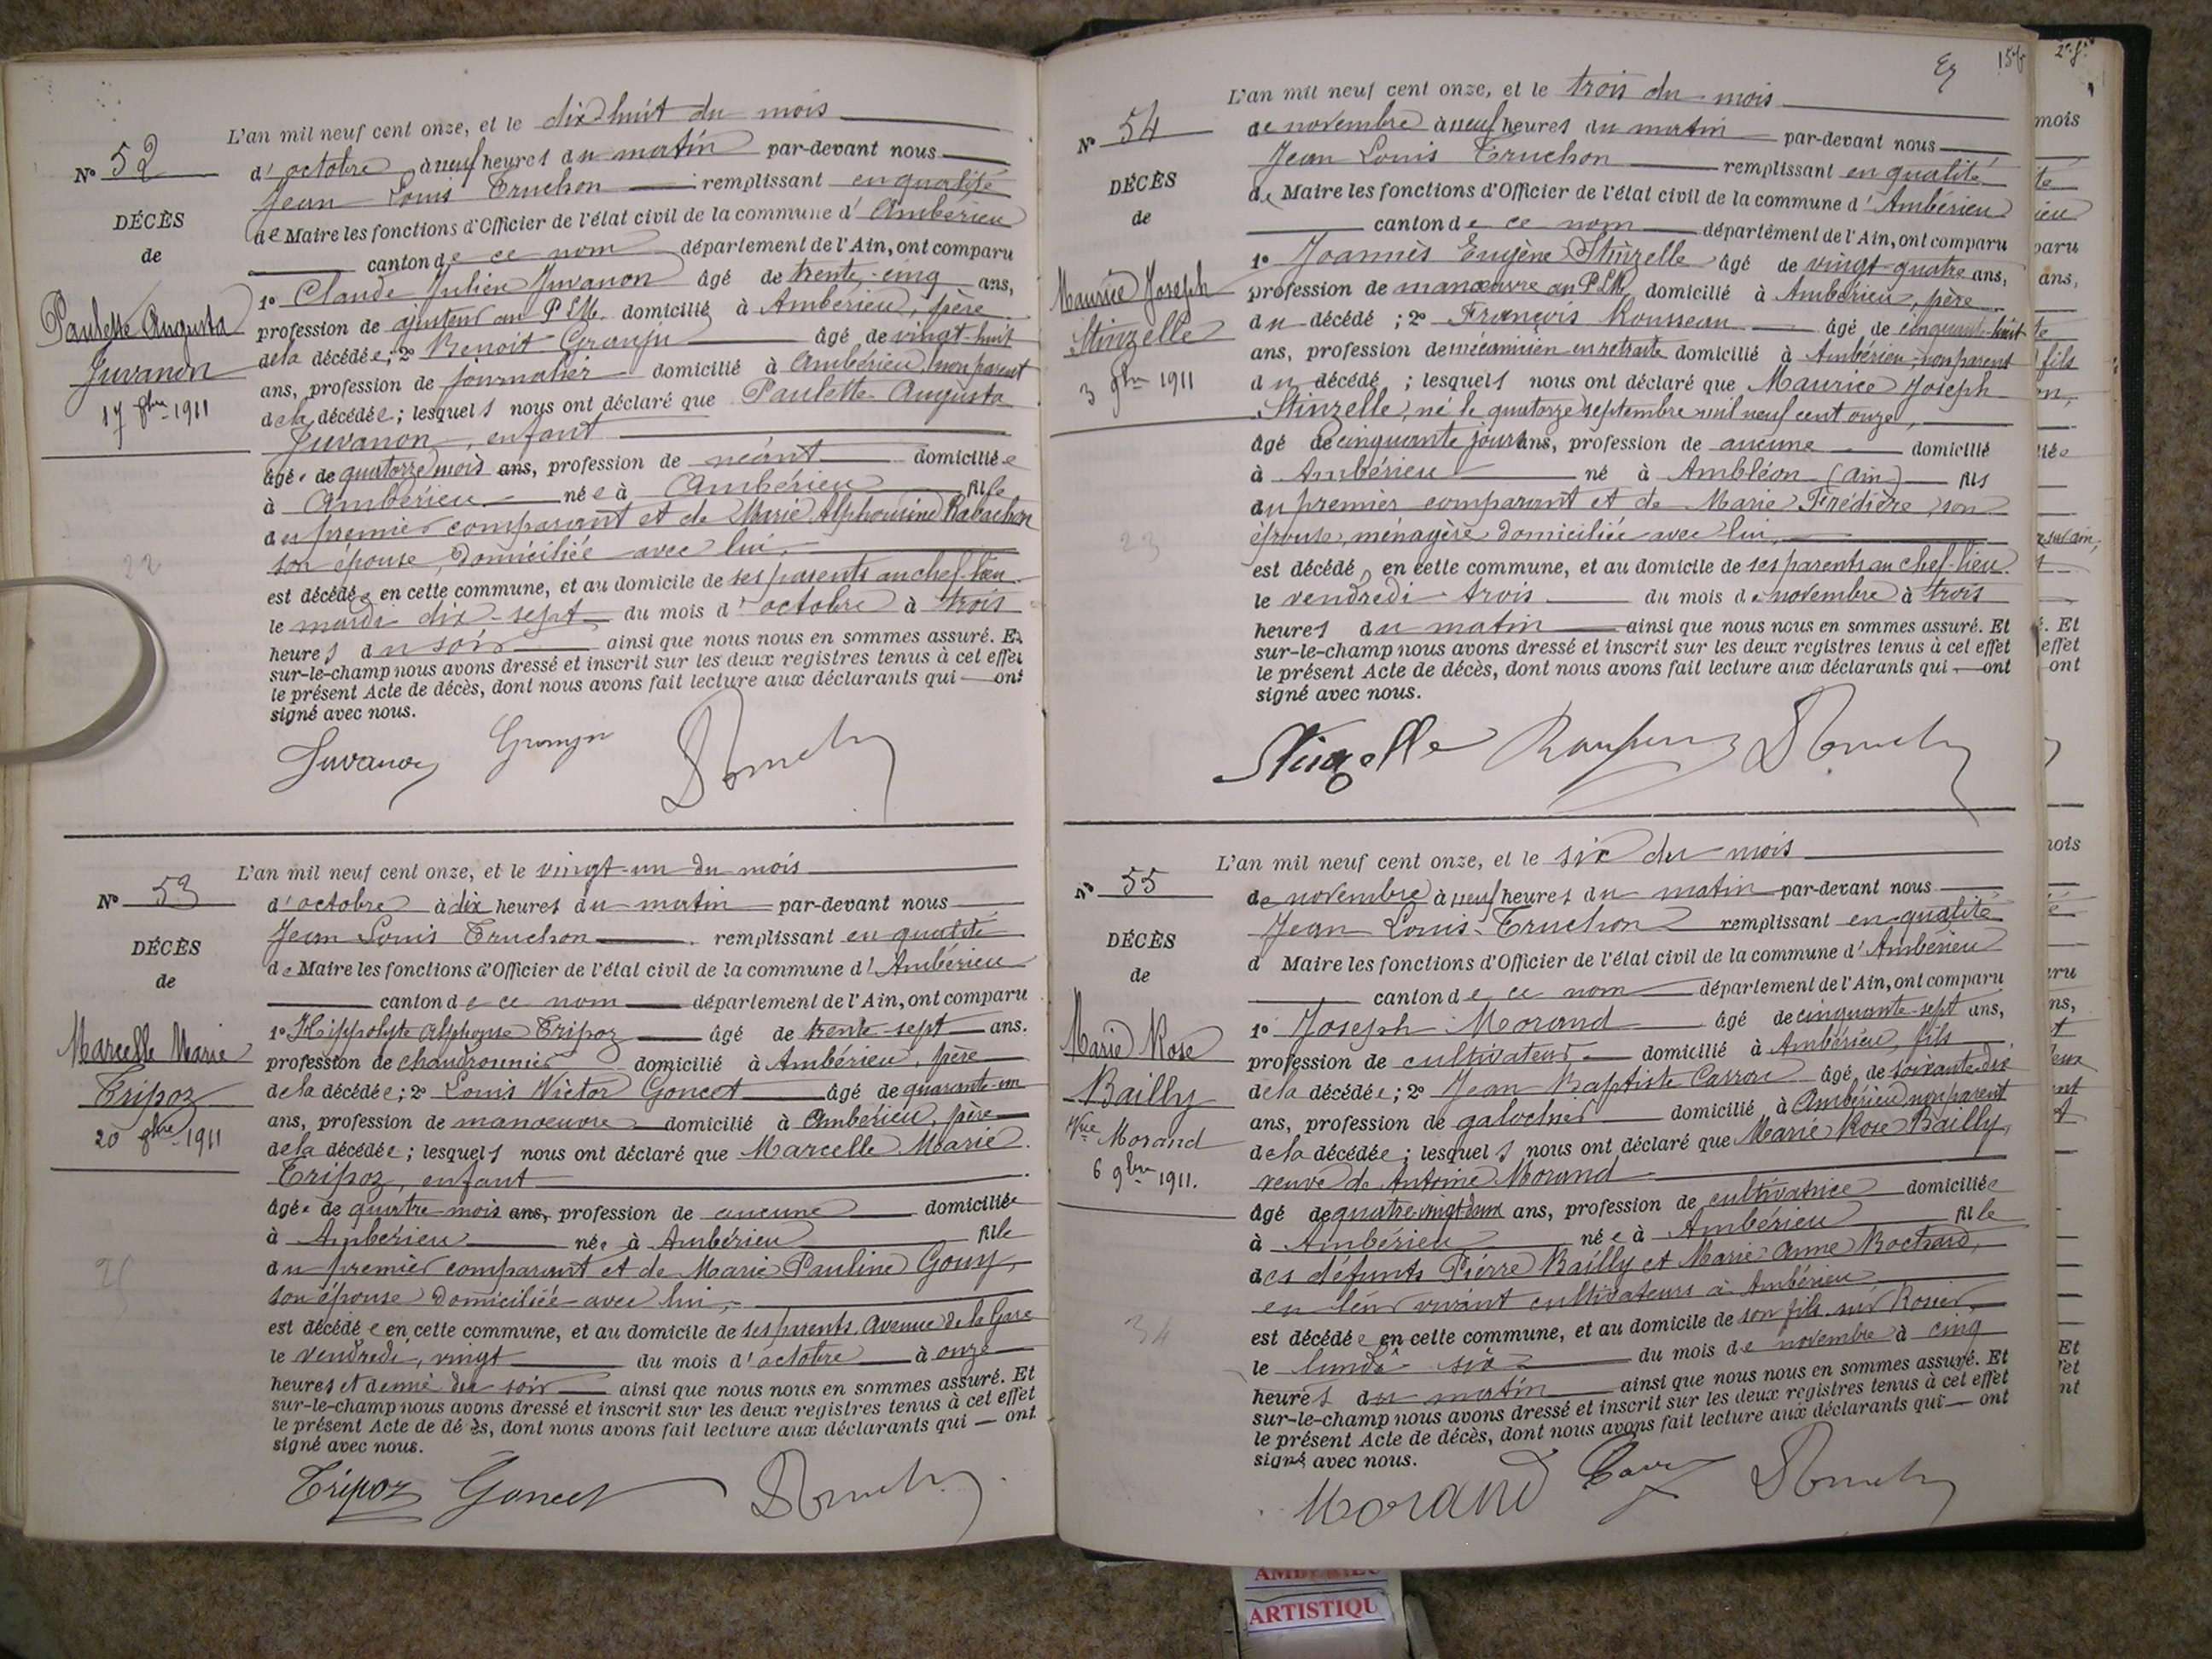 L'an mil neuf cent onze, et le dix huit du mois
N° 52
d'octobre à neuf heures du matin par-devant nous
Jean Louis Truchon remplissant en qualité
DÉCÈS
de Maire les fonctions d'Officier de l'état civil de la commune d'Ambérieu
de
canton de ce nom département de l'Ain, ont comparu
1° Claude Julien Juvanon âgé de trente-cinq ans,
Paulette Augusta
profession de ajusteur au PLM domicilié à Ambérieu, père
Juvanon
de la décédée; 2° Benoit Granju âgé de vingt-huit
17 8bre 1911
ans, profession de journalier domicilié à Ambérieu, non parent
de la décédée; lesquels nous ont déclaré que Paulette Augusta
Juvanon, enfant
âgée de quatorze mois ans, profession de néant domiciliée
à Ambérieu née à Ambérieu fille
du premier comparant et de Marie Alphonsine
son épouse, domiciliée avec lui,
22
est décédée en cette commune, et au domicile de ses parents au chef-lieu
le mardi dix-sept du mois d'octobre à trois
heures du soir ainsi que nous nous en sommes assuré. Et
sur-le-champ nous avons dressé et inscrit sur les deux registres tenus à cet effet
le présent Acte de décès, dont nous avons fait lecture aux déclarants qui ont
signé avec nous.
Juvanon Granju
L'an mil neuf cent onze, et le vingt-un du mois
N° 53
d'octobre à dix heures du matin par-devant nous
Jean Louis Truchon remplissant en qualité
DÉCÈS
de Maire les fonctions d'Officier de l'état civil de la commune d'Ambérieu
de
canton de ce nom département de l'Ain, ont comparu
1° Hippolyte Alphonse Tripoz âgé de trente-sept ans.
Marcelle Marie
profession de chaudronnier domicilié à Ambérieu, père
Tripoz
de la décédée; 2° Louis Victor Goncet âgé de quarante-un
20 8bre 1911
ans, profession de manoeuvre domicilié à Ambérieu, père
de la décédée; lesquels nous ont déclaré que Marcelle Marie
Tripoz, enfant
âgée de quatre mois ans, profession de aucune domiciliée
à Ambérieu née à Ambérieu fille
du premier comparant et de Marie Pauline Gouy,
son épouse domiciliée avec lui,
est décédée en cette commune, et au domicile de ses parents, Avenue de la Gare
le vendredi, vingt du mois d'octobre à onze
heures et demie du soir ainsi que nous nous en sommes assuré. Et
sur-le-champ nous avons dressé et inscrit sur les deux registres tenus à cet effet
le présent Acte de dé ès, dont nous avons fait lecture aux déclarants qui ont
signé avec nous.
Tripoz Goncet
L'an mil neuf cent onze, et le trois du mois
N° 54
de novembre à neuf heures du matin par-devant nous
Jean Louis Truchon remplissant en qualité
DÉCÈS
de Maire les fonctions d'Officier de l'état civil de la commune d'Ambérieu
de
canton de ce nom département de l'Ain, ont comparu
1° Joannès Eugène Stinzelle âgé de vingt-quatre ans,
Maurice Joseph
profession de manœuvre au PLM, domicilié à Ambérieu, père
Stinzelle
du décédé; 2° François Rousseau âgé de cinquante-huit
3 9bre 1911
ans, profession de mécanicien en retraite domicilié à Ambérieu, non parent
du décédé; lesquels nous ont déclaré que Maurice Joseph
Stinzelle, né le quatorze septembre mil neuf cent onze,
âgé de cinquante jours ans, profession de aucune domicilié
à Ambérieu né à Ambléon (Ain) fils
du premier comparant et de Marie Frédière, son
épouse, ménagère domiciliée avec lui,
23
est décédé, en cette commune, et au domicile de ses parents au chef-lieu.
le vendredi trois du mois de novembre à trois
heures du matin ainsi que nous nous en sommes assuré. Et
sur-le-champ nous avons dressé et inscrit sur les deux registres tenus à cet effet
le présent Acte de décès, dont nous avons fait lecture aux déclarants qui ont
signé avec nous.
Stinzelle
L'an mil neuf cent onze, et le six du mois
N° 55
de novembre à neuf heures du matin par-devant nous
Jean Louis Truchon remplissant en qualité
DÉCÈS
d Maire les fonctions d'Officier de l'état civil de la commune d'Ambérieu
de
canton de ce nom département de l'Ain, ont comparu
1° Joseph Morand âgé de cinquante-sept ans,
Marie Rose
profession de cultivateur domicilié à Ambérieu, fils
Bailly
de la décédée; 2° Jean Baptiste Carron âgé de soixante-dix
Vve Morand
ans, profession de galochier domicilié à Ambérieu, non parent
6 9bre 1911.
de la décédée; lesquels nous ont déclaré que Marie Rose Bailly,
veuve de Antoine Morand
âgé de quatre-vingt-deux ans, profession de cultivatrice domiciliée
à Ambérieu née à Ambérieu fille
des défunts Pierre Bailly et Marie Anne Bochard,
en leur vivant cultivateurs à Ambérieu
34
est décédée en cette commune, et au domicile de son fils
le lundi six du mois de novembre à cinq
heures du matin ainsi que nous nous en sommes assuré. Et
sur-le-champ nous avons dressé et inscrit sur les deux registres tenus à cet effet
le présent Acte de décès, dont nous avons fait lecture aux déclarants qui ont
signé avec nous.
Morand
ARTISTIQU